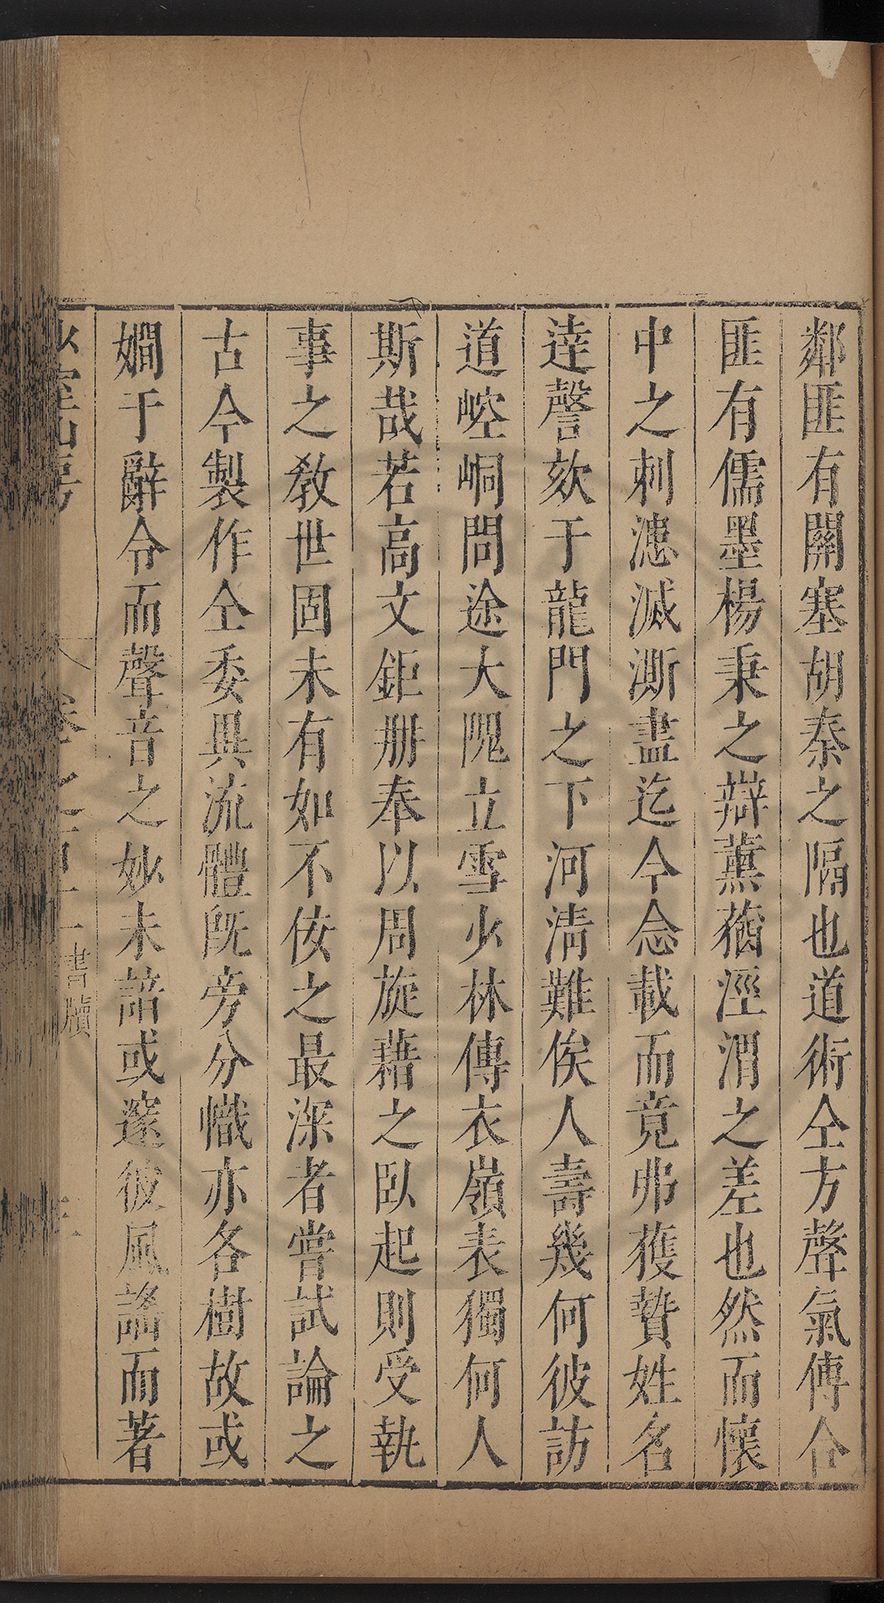 鄰匪有關塞胡秦之隔也道術仝方聲氣傅合
匪有儒墨楊秉之辯薰蕕涇渭之差也然而懷
中之刺漶滅澌盡迄今念載而竟弗獲贄姓名
逹謦欬于龍門之下河淸難俟人壽幾何彼訪
道崆峒問途大隗立雪少林傳衣嶺表獨何人
斯哉若高文鉅册奉以周旋藉之臥起則受執
事之敎世固未有如不佞之最深者嘗試論之
古今製作仝委異流體旣旁分幟亦各樹故或
嫺于辭令而聲音之妙未諳或邃彼風謠而著
少室山房 卷之百十一 書牘 三